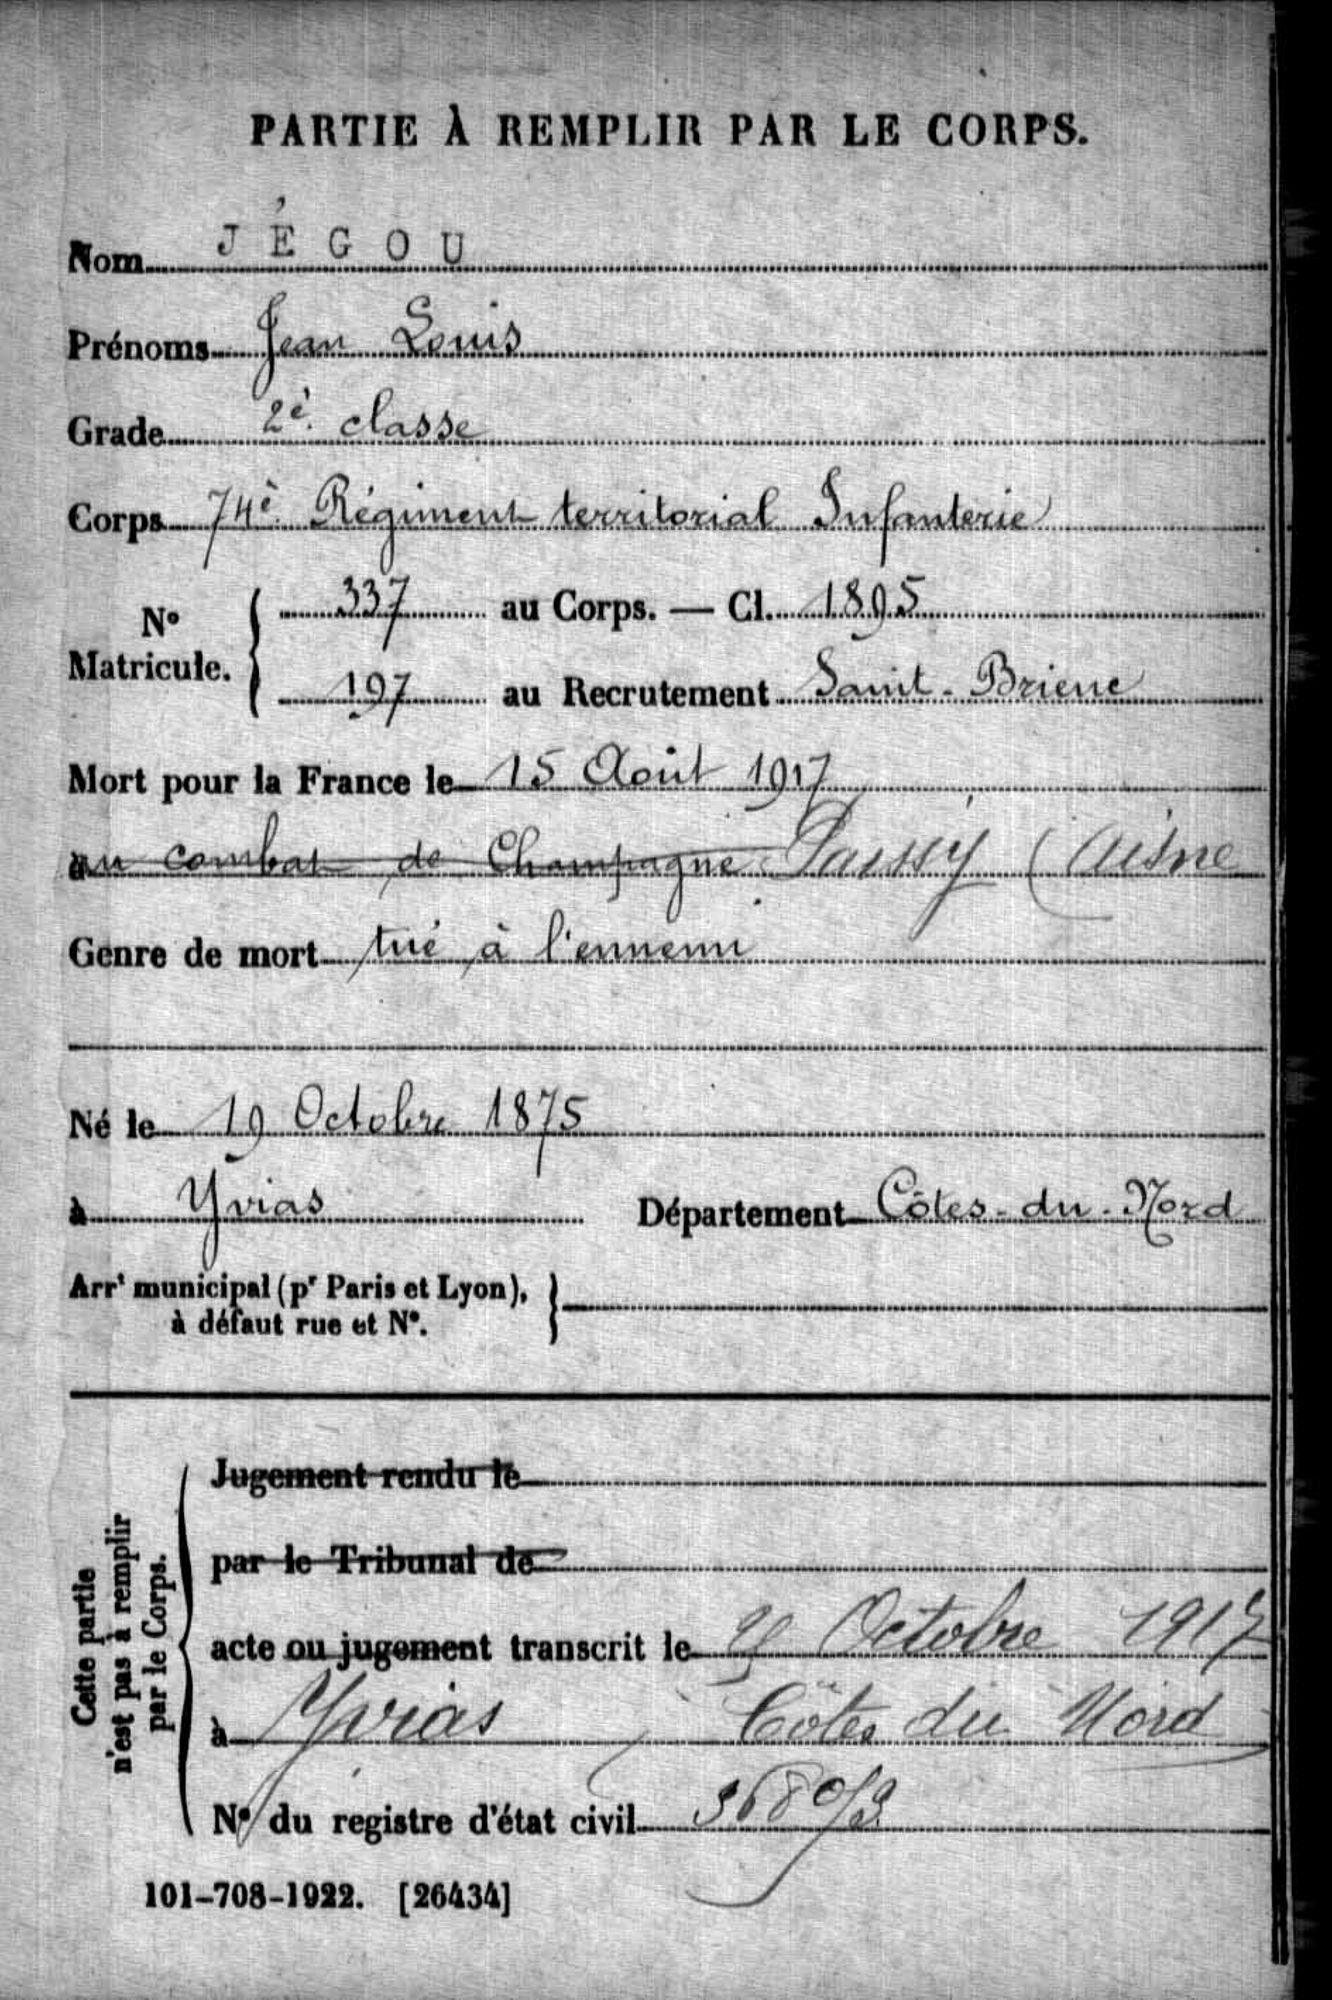 PARTIE À REMPLIR PAR LE CORPS.
Nom JÉGOU
Prénoms Jean Louis
Grade 2è. classe
Corps 74è. Régiment territorial Infanterie
N° Matricule. 337 au Corps. — Cl. 1895
197 au Recrutement Saint-Brieuc
Mort pour la France le 15 Août 1917
au combat de Champagne Paissy (Aisne
Genre de mort tué à l'ennemi
Né le 19 Octobre 1875
à Yvias Département Côtes-du-Nord
Arrt municipal (pr Paris et Lyon),
à défaut rue et N°.
Cette partie
n'est pas à remplir
par le Corps.
Jugement rendu le
par le Tribunal de
acte ou jugement transcrit le Octobre 1917
à Yvias Côtes du Nord
N° du registre d'état civil
101-708-1922. [26434]